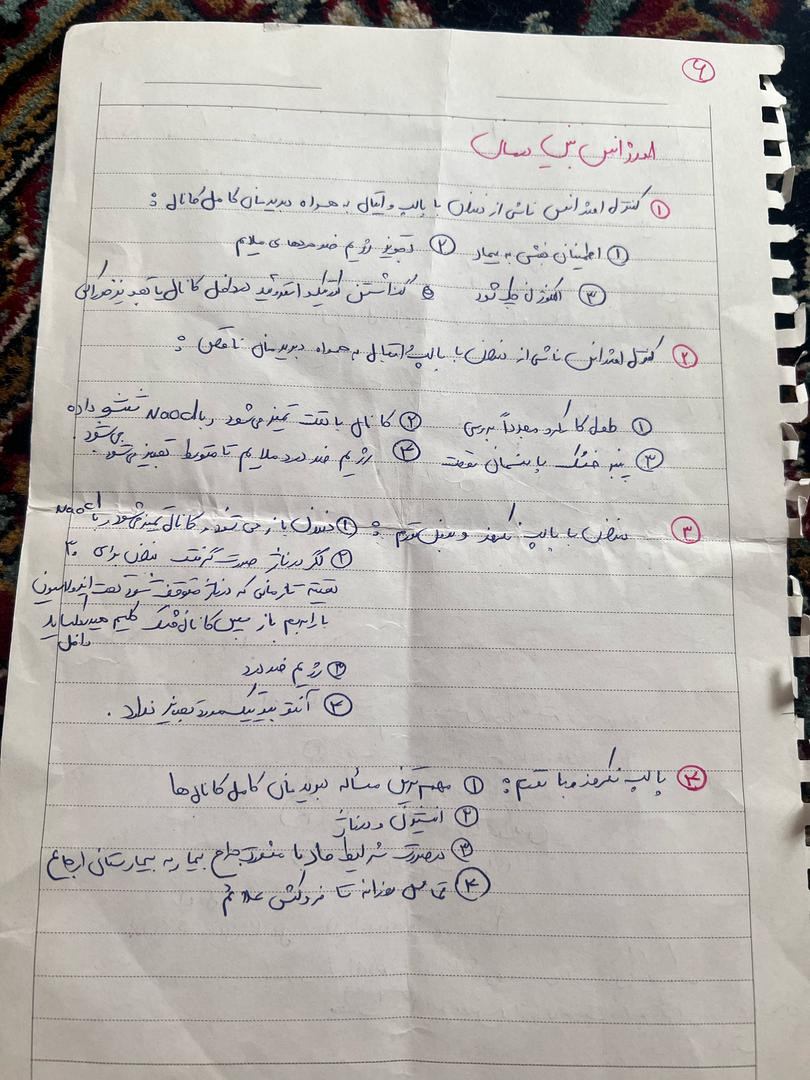 ۶
اورژانس بین درمان
① کنترل اورژانس ناشی از دندان با پالپ وایتال به همراه دبریدمان کامل کانال :
① اطمینان بخشی به بیمار ② تجویز رژیم ضد دردهای ملایم
③ اکلوژن چک شود گذاشتن کورتیکو استروئید داخل کانال یا تجویز خوراکی
② کنترل اورژانس ناشی از دندان با پالپ وایتال به همراه دبریدمان ناقص :
① طول کارکرد مجدداً بررسی ② کانال با دقت تمیز می‌شود و با NaOCl شستشو داده می‌شود.
③ پنبه خشک با پانسمان موقت ④ رژیم ضد درد ملایم تا متوسط تجویز می‌شود.
③ دندان با پالپ نکروز و بدون تورم : ① دندان باز می‌شود و کانال تمیز می‌شود با NaOCl
② اگر درناژ صورت گرفت دندان برای ۳۰
دقیقه تا زمانی که درناژ متوقف شود تحت ایزولاسیون
رابردم باز سپس کانال خشک کلسیم هیدروکساید داخل
③ رژیم ضد درد
④ آنتی بیوتیک مورد تجویز ندارد.
④ پالپ نکروز و با تورم : ① مهم ترین مساله دبریدمان کامل کانال‌ها
② انسیژن و درناژ
③ درصورت شرایط حاد با مشورت جراح بیمار به بیمارستانی ارجاع
④ تماس روزانه تا فروکش علائم